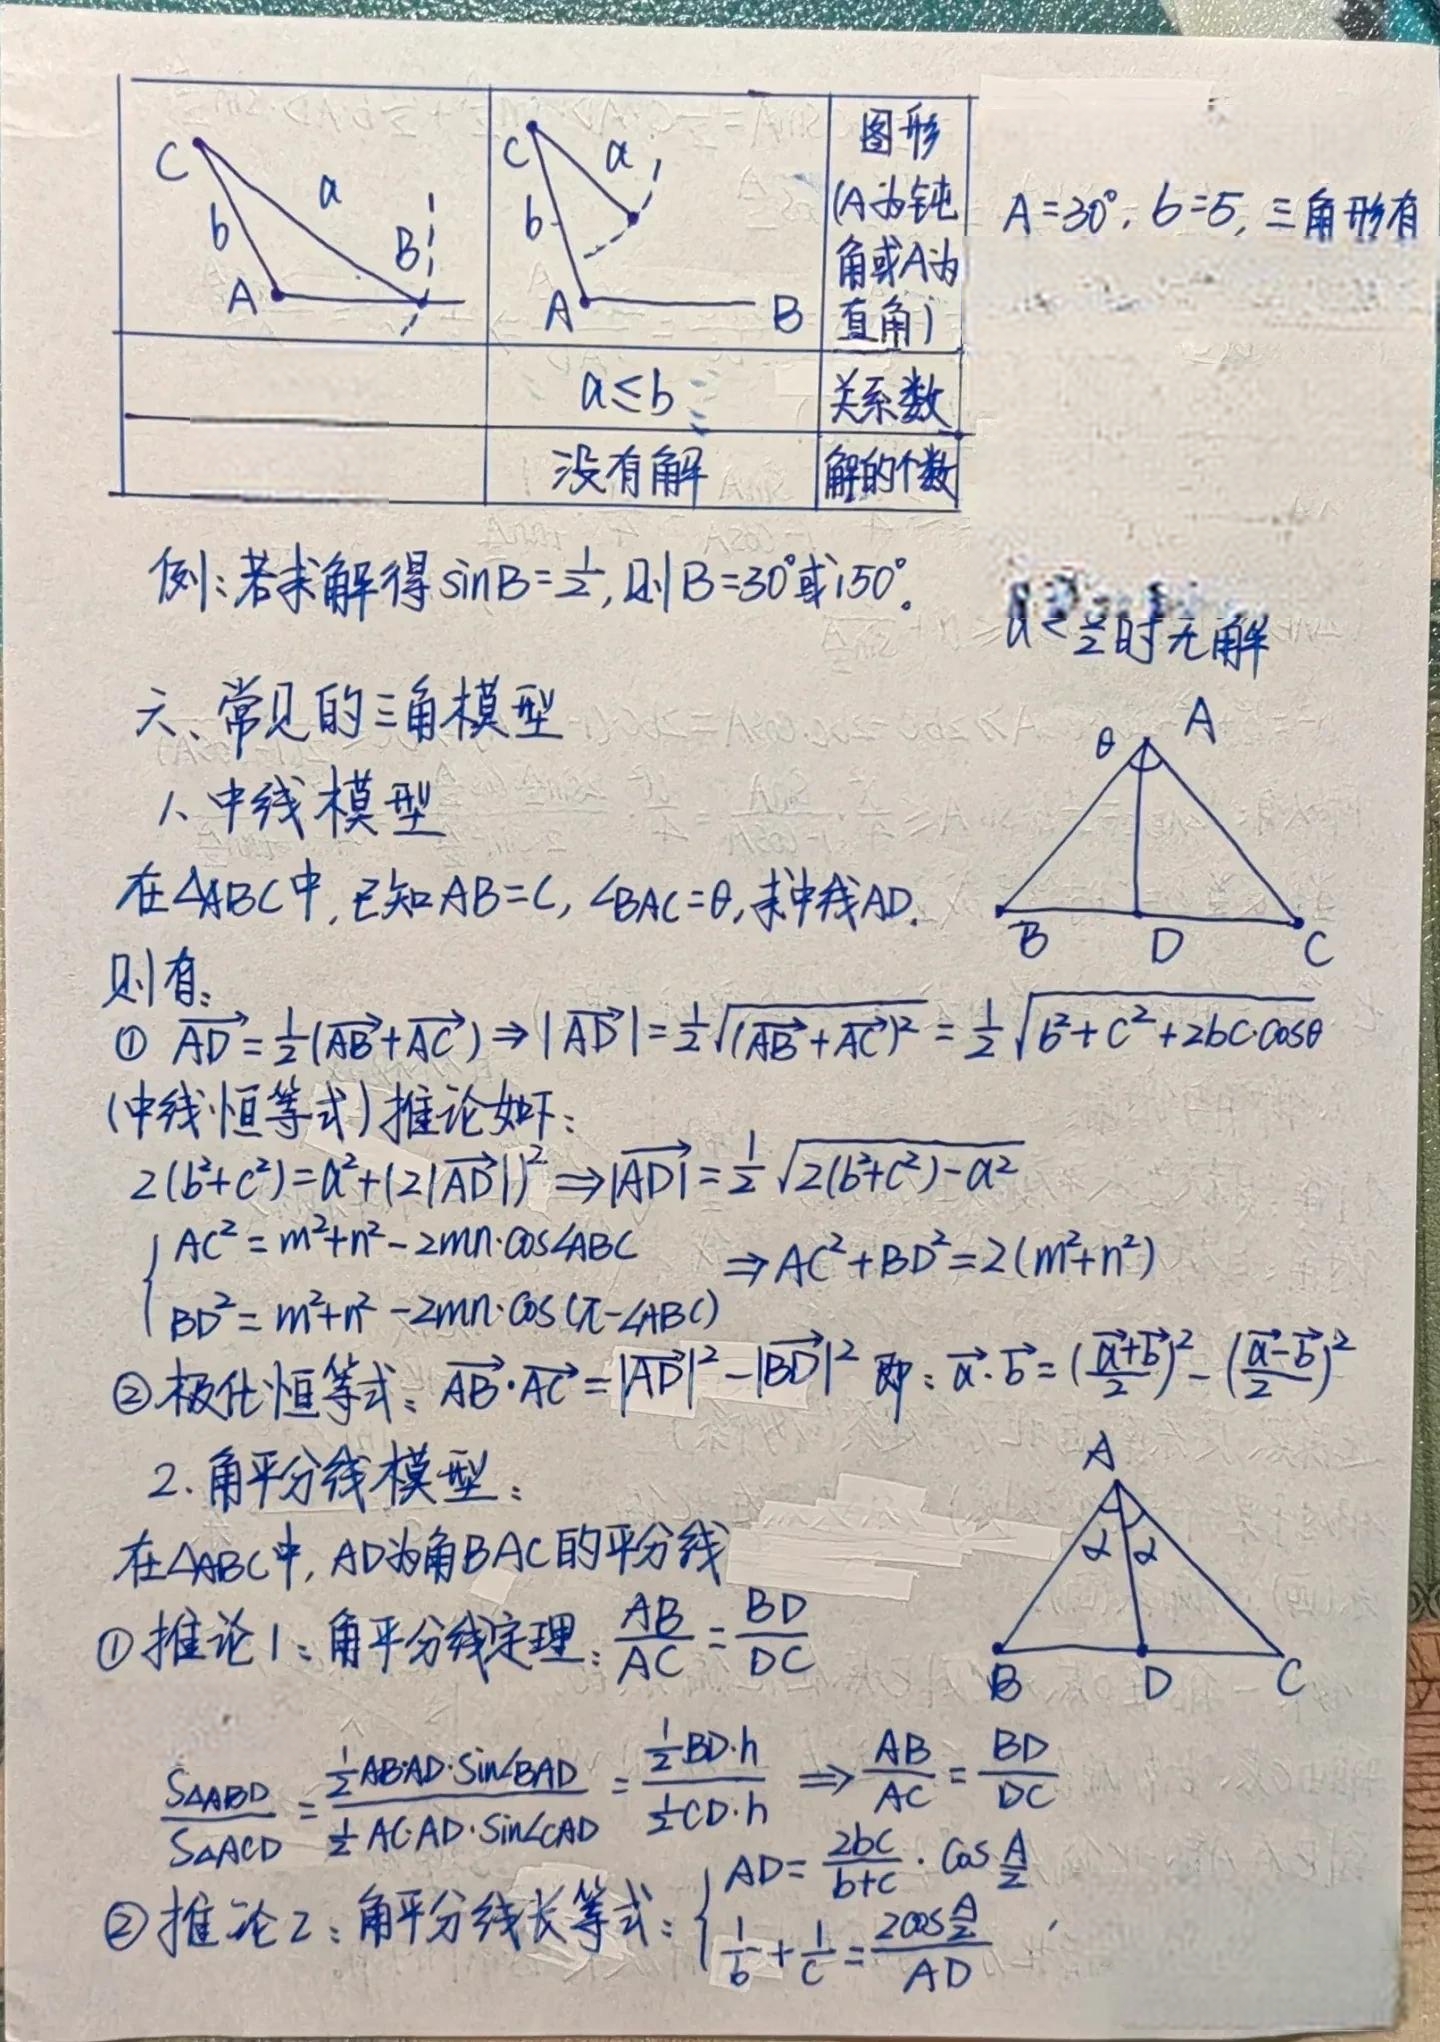 C a b A B
C a b A B
图形
(A为钝
角或A为
直角)
A=30°, b=5, 三角形有
a≤b 关系数
没有解 解的个数
例:若求解得sinB=1/2,则B=30°或150°。
时无解
六、常见的三角模型
1、中线模型
θ A
B D C
在△ABC中,已知AB=C,∠BAC=θ,求中线AD.
则有:
① →AD=1/2(→AB+→AC)⇒|→AD|=1/2√(→AB+→AC)²=1/2√b²+c²+2bc·cosθ
(中线恒等式)推论如下:
2(b²+c²)=a²+(2|→AD|)²⇒|→AD|=1/2√2(b²+c²)-a²
{AC²=m²+n²-2mn·cos∠ABC
BD²=m²+n²-2mn·cos(π-∠ABC)
⇒AC²+BD²=2(m²+n²)
②极化恒等式:→AB·→AC=|→AD|²-|→BD|² 即:→a·→b=(→a+→b/2)²-(→a-→b/2)²
2.角平分线模型:
A
α α
B D C
在△ABC中,AD为角BAC的平分线
①推论1:角平分线定理:AB/AC=BD/DC
S△ABD/S△ACD=1/2AB·AD·Sin∠BAD/1/2AC·AD·Sin∠CAD=1/2BD·h/1/2CD·h⇒AB/AC=BD/DC
②推论2:角平分线长等式:{AD=2bc/b+c·cosA/2
1/b+1/c=2cosA/2/AD